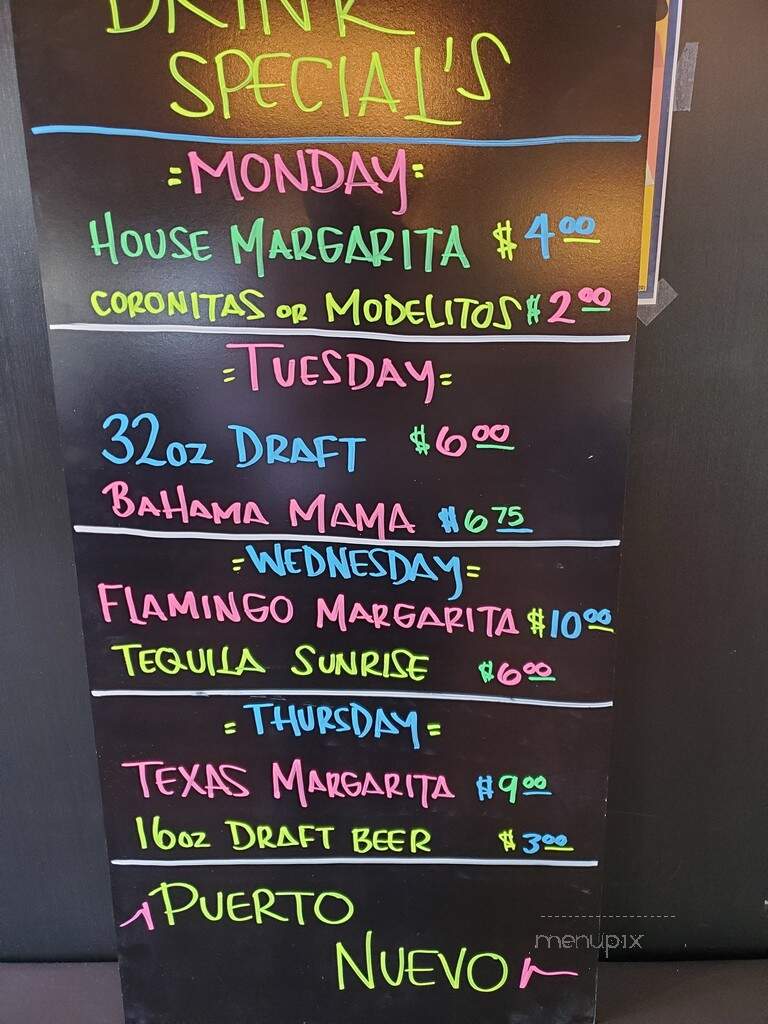 DRINK
SPECIAL'S
=MONDAY=
HOUSE MARGARITA $4.00
CORONITAS OR MODELITOS $2.00
=TUESDAY=
32oz DRAFT $6.00
BAHAMA MAMA $6.75
=WEDNESDAY=
FLAMINGO MARGARITA $10.00
TEQUILA SUNRISE $6.00
=THURSDAY=
TEXAS MARGARITA $9.00
16oz DRAFT BEER $3.00
PUERTO
NUEVO
menupix